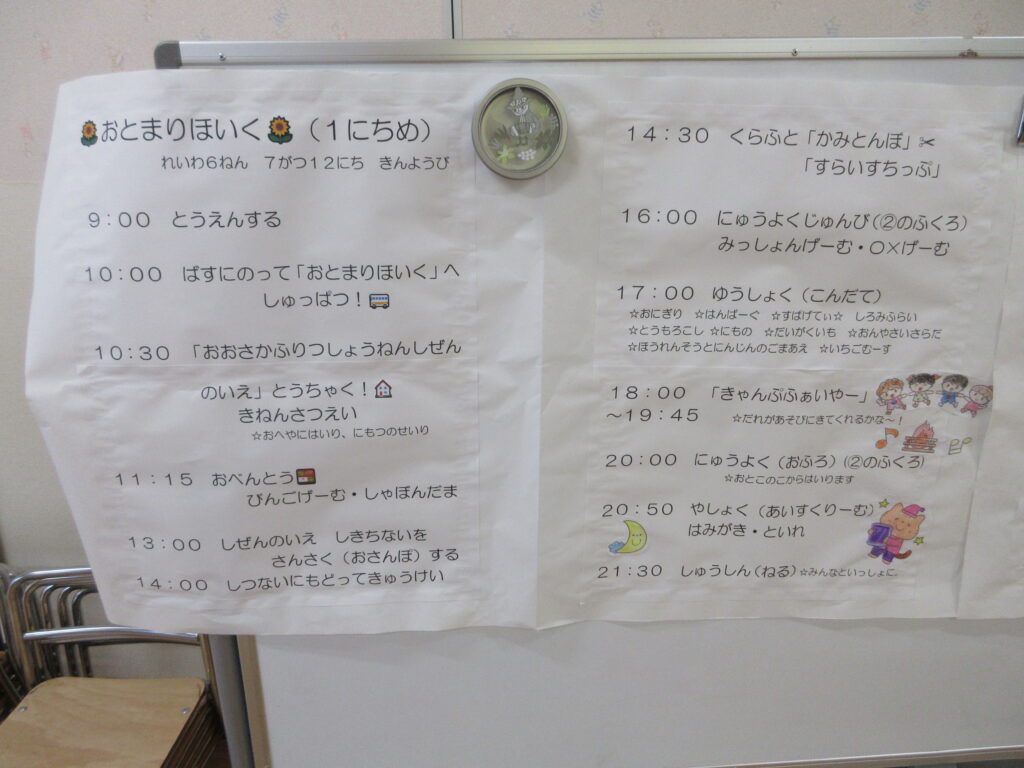 おとまりほいく（１にちめ）
れいわ６ねん　７がつ１２にち　きんようび
９：００　とうえんする
１０：００　ばすにのって「おとまりほいく」へ
しゅっぱつ！
１０：３０　「おおさかふりつしょうねんしぜん
のいえ」とうちゃく！
きねんさつえい
☆おへやにはいり、にもつのせいり
１１：１５　おべんとう
びんごげーむ・しゃぼんだま
１３：００　しぜんのいえ　しきちないを
さんさく（おさんぽ）する
１４：００　しつないにもどってきゅうけい
１４：３０　くらふと「かみとんぼ」✂
「すらいすちっぷ」
１６：００　にゅうよくじゅんび（②のふくろ）
みっしょんげーむ・〇×げーむ
１７：００　ゆうしょく（こんだて）
☆おにぎり　☆はんばーぐ　☆すぱげてぃ☆　しろみふらい
☆とうもろこし　☆にもの　☆だいがくいも　☆おんやさいさらだ
☆ほうれんそうとにんじんのごまあえ　☆いちごむーす
１８：００　「きゃんぷふぁいやー」
～１９：４５　☆だれがあそびにきてくれるかな～！
２０：００　にゅうよく（おふろ）（②のふくろ）
☆おとこのこからはいります
２０：５０　やしょく（あいすくりーむ）
はみがき・といれ
２１：３０　しゅうしん（ねる）☆みんなといっしょに。